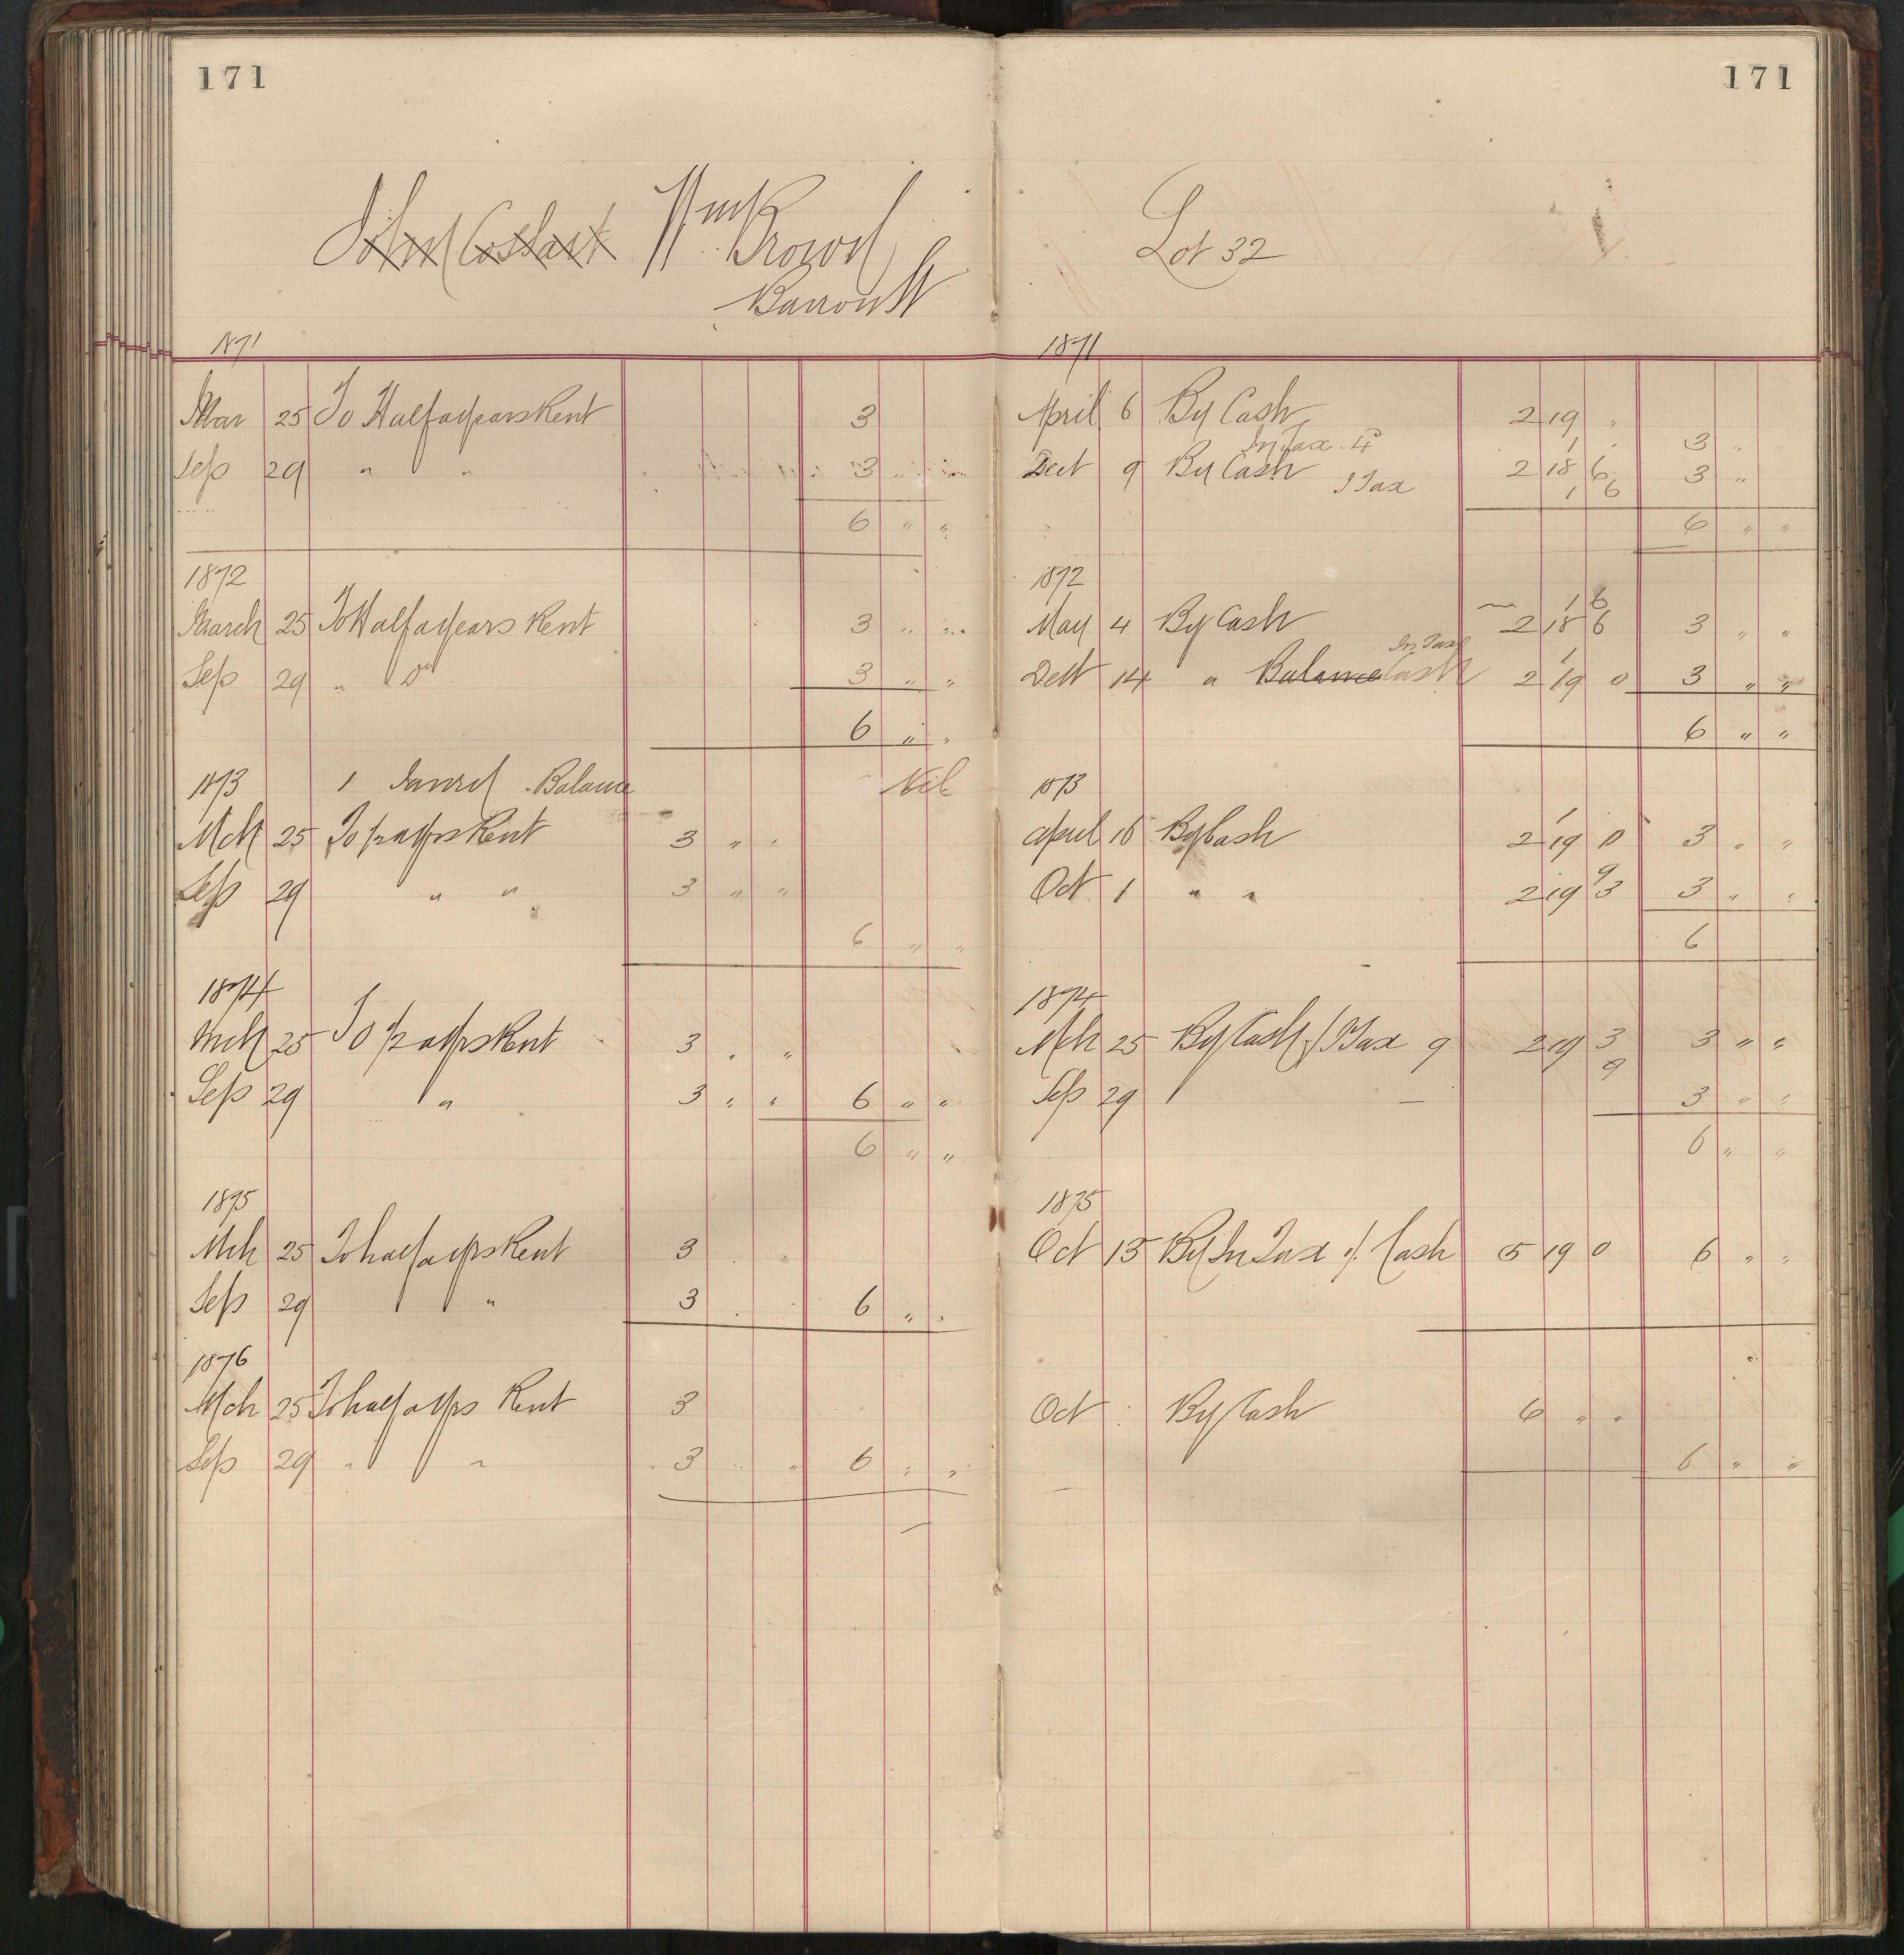 171
John Cossart Wm Brown
Barron St
1871
Mar 25 To Half a years Rent 3
Sep 29 " " 3 " "
6 " "
1872
March 25 To Half a years Rent 3 " "
Sep 29 " Do 3 " "
6 " "
1873 1 Balance Nil
Mch 25 To ½ a yrs Rent 3 " "
Sep 29 " " 3 " "
6 " "
1874
Mch 25 To ½ a yrs Rent 3 " "
Sep 29 " 3 " " 6 " "
6 " "
1875
Mch 25 To half a yrs Rent 3
Sep 29 " 3 6 " "
1876
Mch 25 To half a yrs Rent 3
Sep 29 " " 3 " " 6 " "
171
Lot 32
1871
April 6 By Cash 2 19 "
In Tax 4d 1 " 3 " "
Dect 9 By Cash 2 18 6 3 "
I Tax 1 6
6 " "
1872
1 6
May 4 By Cash 2 18 6 3 " "
In Tax 1
Dect 14 " Balance Cash 2 19 0 3 " "
6 " "
1873
1
April 16 By Cash 2 19 0 3 " "
9
Oct 1 " " 2 19 3 3 " "
6
1874
Mch 25 By Cash & I Tax 9 2 19 3 3 " "
9
Sep 29 3 " "
6 " "
1875
Oct 15 By In Tax & Cash 5 19 0 6 " "
Oct By Cash 6 " "
6 " "